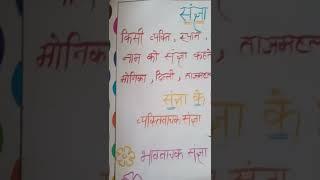 संज्ञा
किसी व्यक्ति, स्थान,
नाम को संज्ञा कहते
मोनिका, दिल्ली, ताजमहल
संज्ञा के
व्यक्तिवाचक संज्ञा
भाववाचक संज्ञा
मोनिका, ताजमहल
संज्ञा के